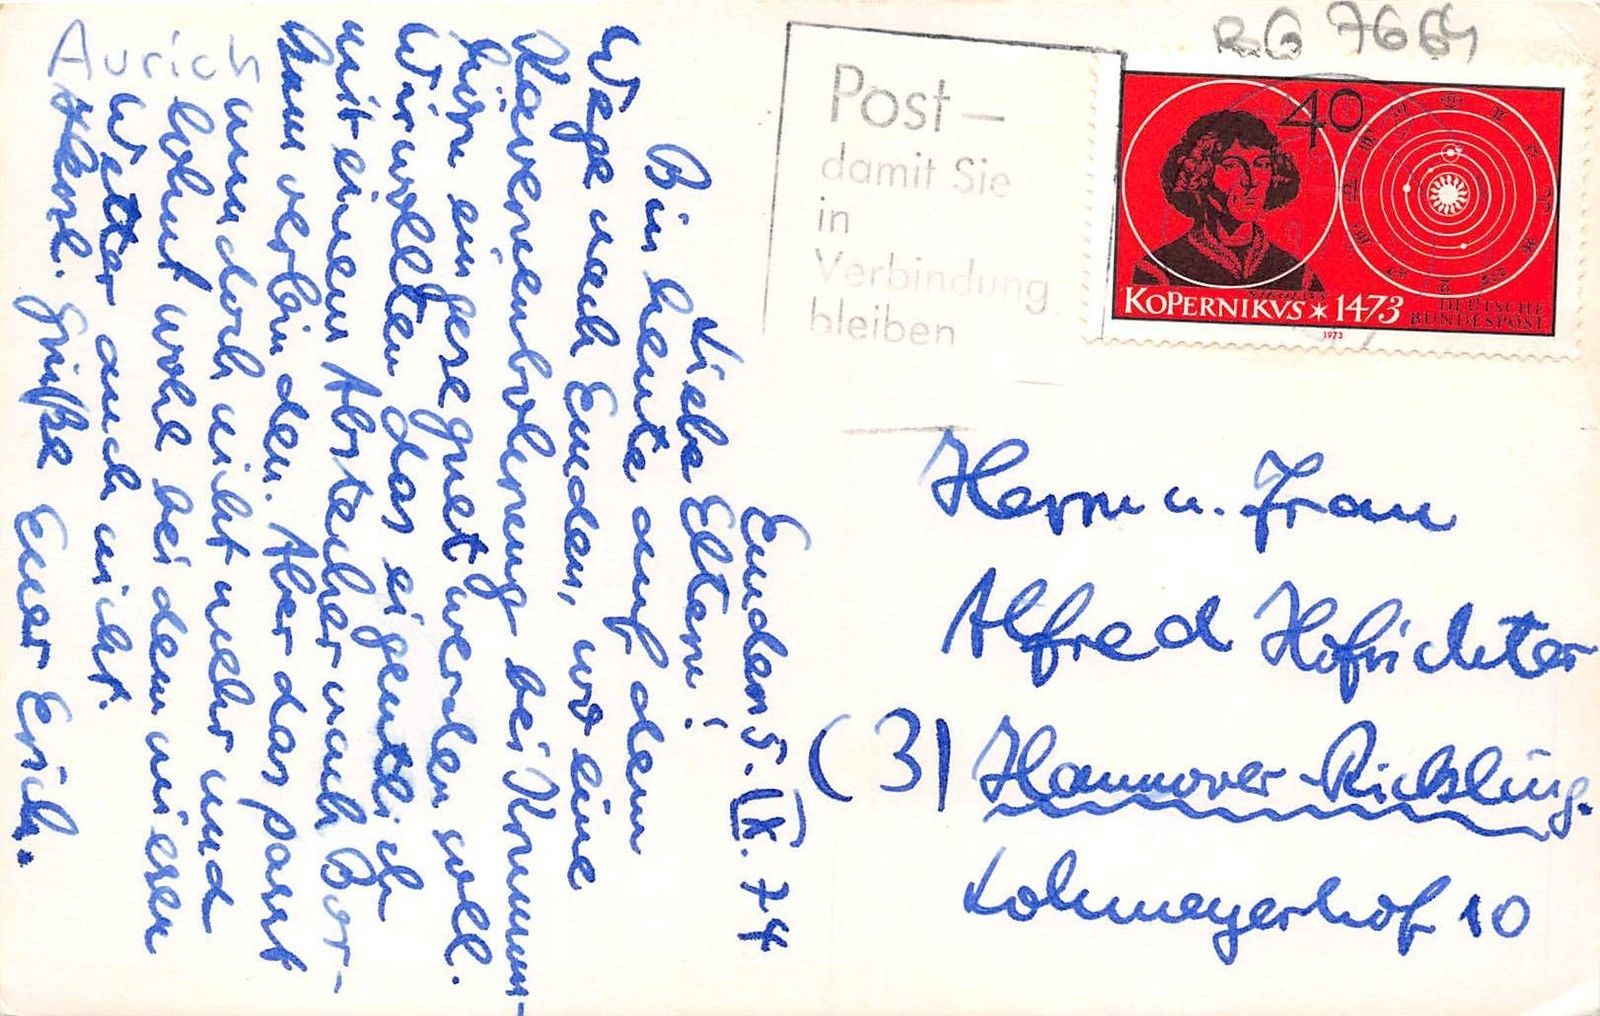 Aurich
Emden 5. IX. 74
Liebe Eltern!
Bin heute auf dem
Wege nach Emden, wo eine
Kavernenbohrung bei Krumm-
hörn eingesegnet werden soll.
Wir wollten das eigentlich
mit einem Abstecher nach Bor-
kum verbinden. Aber das passt
nun doch nicht mehr und
lohnt wohl bei dem miesen
Wetter auch nicht.
Herzl. Grüße Euer Erich.
Post –
damit Sie
in
Verbindung
bleiben
RG 7664
40
KOPERNIKVS * 1473
DEUTSCHE
BUNDESPOST
1973
Herrn u. Frau
Alfred Hofrichter
(3) Hannover-Rickling.
Lohmeyerhof 10